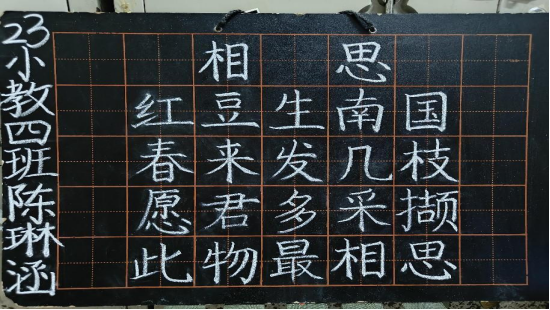 23小教四班陈琳涵
相思
红豆生南国
春来发几枝
愿君多采撷
此物最相思